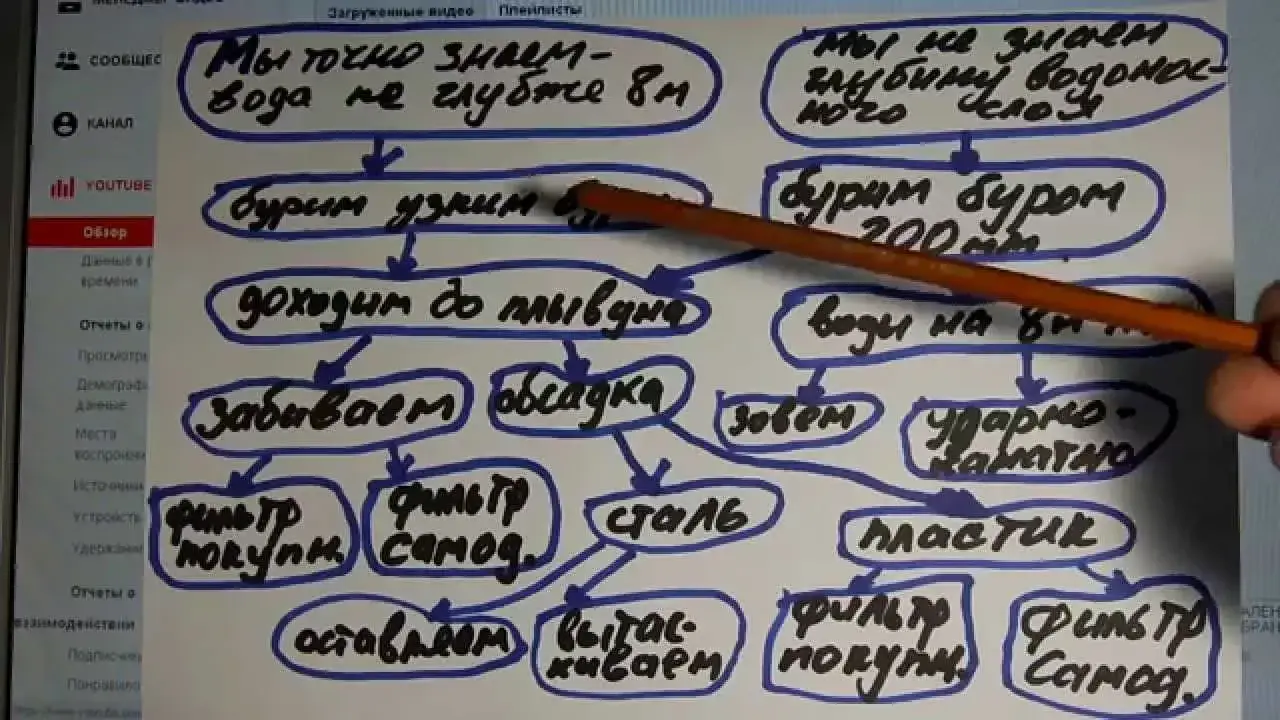 Загруженные видео
Плейлисты
СООБЩЕС
КАНАЛ
YOUTUBE
Обзор
Данные в р
времени
Отчеты о
Просмотры
Демограф
данные
Места
воспроизв
Источники
Устройств
Удержани
Отчеты о
взаимодействии
Подписчик
Понравило
Мы точно знаем-
вода не глубже 8м
Мы не знаем
глубину водонос-
ного слоя
бурим узким
бурим буром
200мм
доходим до плывуна
воды на 8м
забиваем
обсадка
зовём
ударно-
канатно
фильтр
покупн.
фильтр
самод.
сталь
пластик
оставляем
вытас-
киваем
фильтр
покупн.
фильтр
самод.